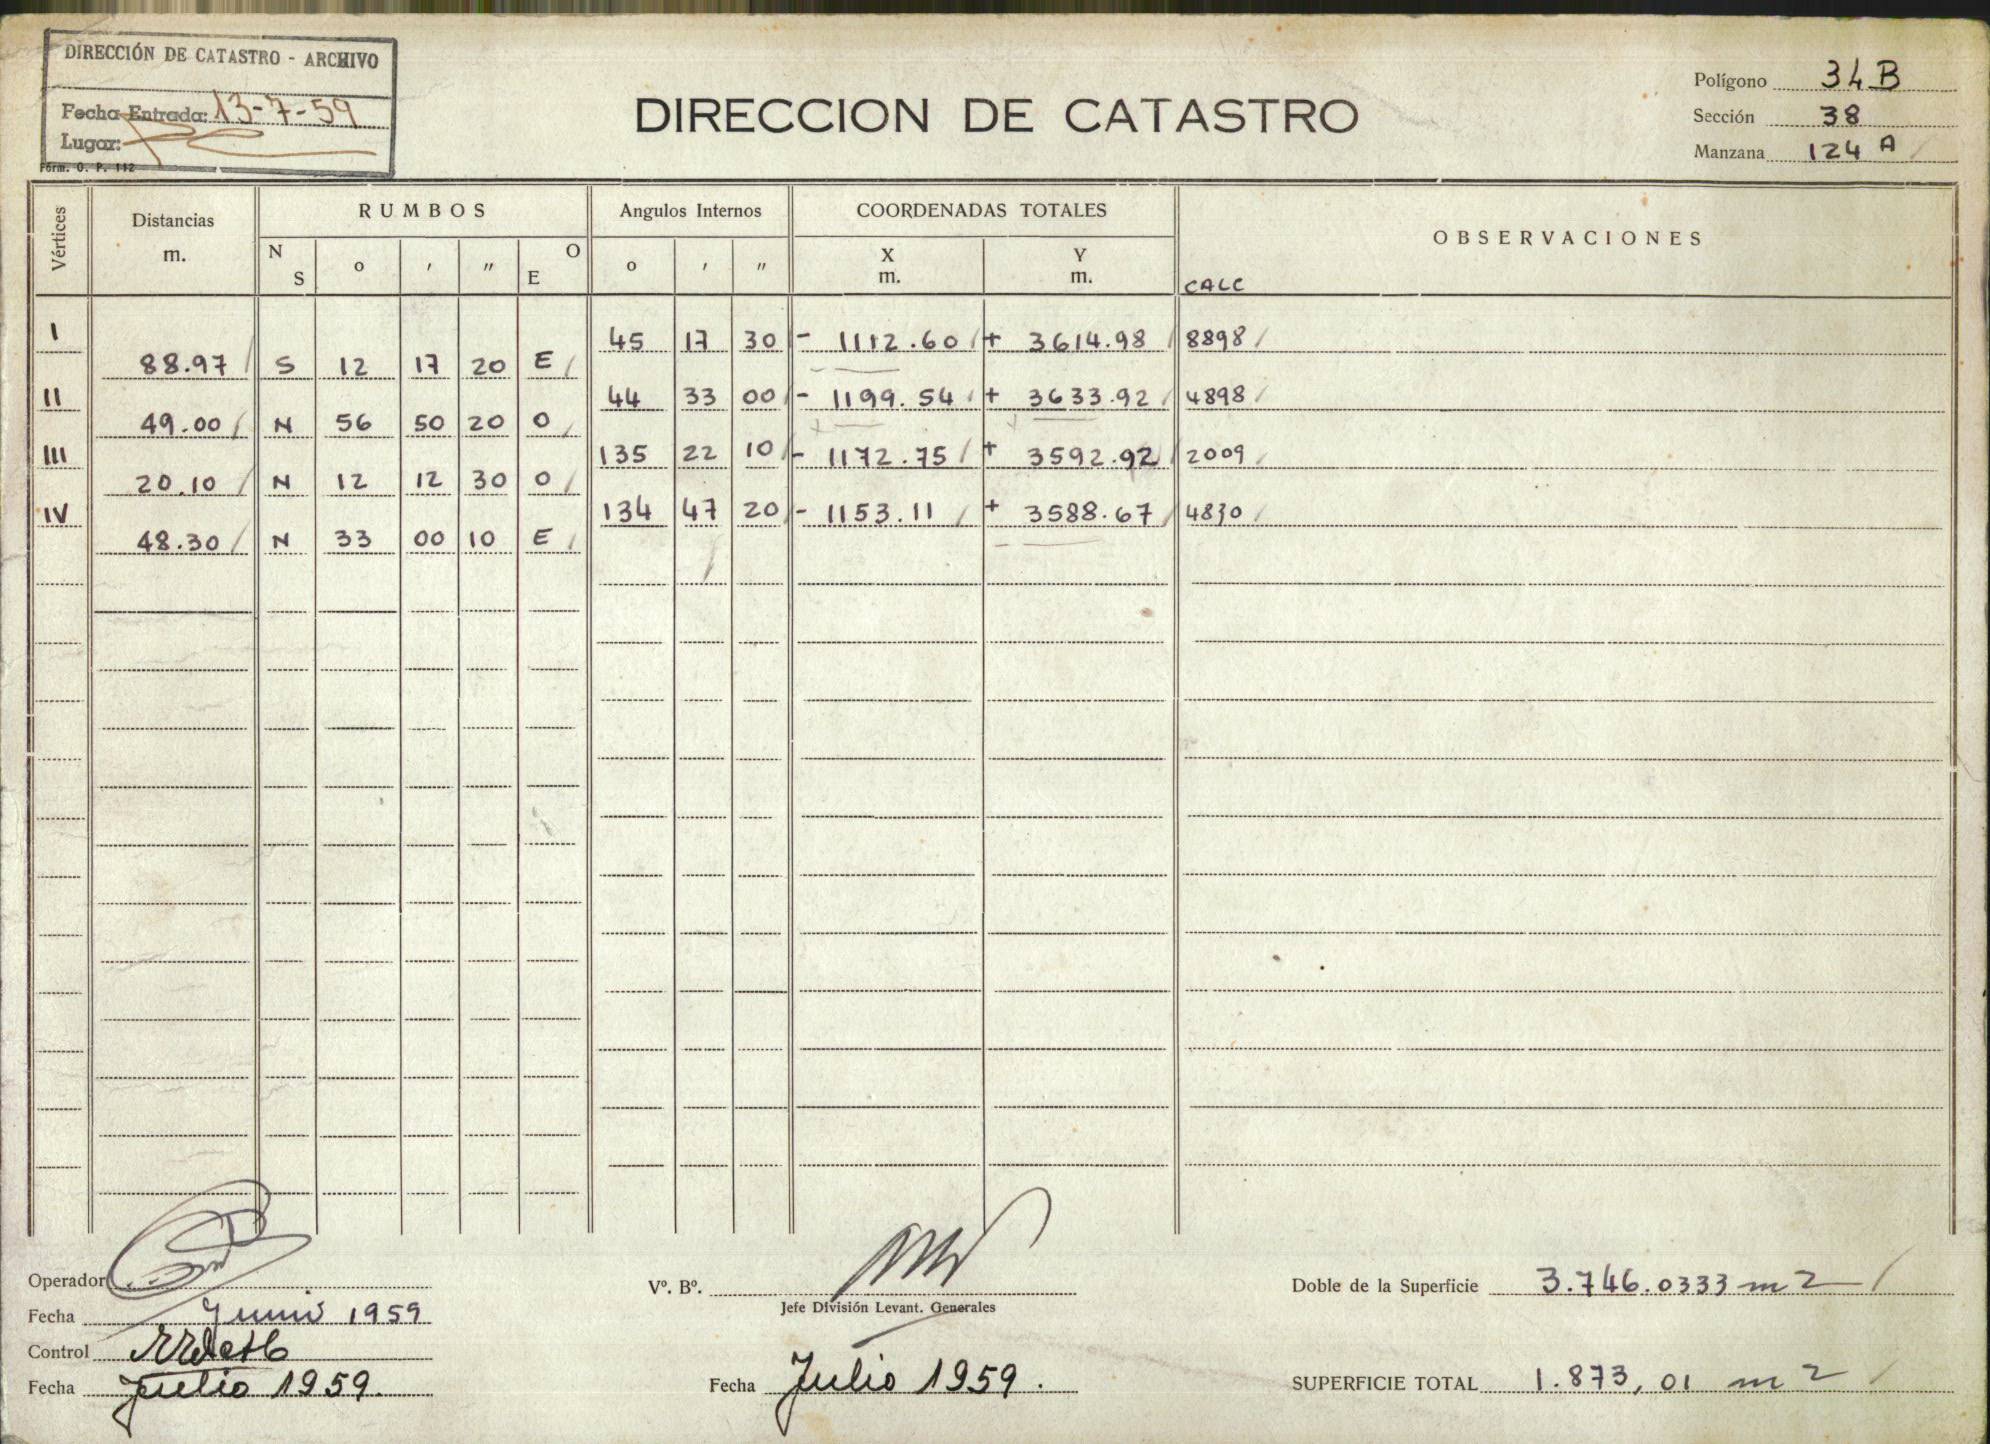 DIRECCIÓN DE CATASTRO - ARCHIVO
Fecha Entrada: 13-7-59
Lugar:
Form. O. P. 112
DIRECCION DE CATASTRO
Polígono 34 B
Sección 38
Manzana 124 A
Vértices Distancias m. RUMBOS Angulos Internos COORDENADAS TOTALES OBSERVACIONES
N S o ′ ″ O E o ′ ″ X m. Y m. CALC
I 45 17 30 - 1112.60 + 3614.98 8898
88.97 S 12 17 20 E
II 44 33 00 - 1199.54 + 3633.92 4898
49.00 N 56 50 20 O
III 135 22 10 - 1172.75 + 3592.92 2009
20.10 N 12 12 30 O
IV 134 47 20 - 1153.11 + 3588.67 4830
48.30 N 33 00 10 E
Operador
Fecha Junio 1959
Control
Fecha Julio 1959.
Vº. Bº.
Jefe División Levant. Generales
Fecha Julio 1959.
Doble de la Superficie 3.746.0333 m2
SUPERFICIE TOTAL 1.873,01 m2